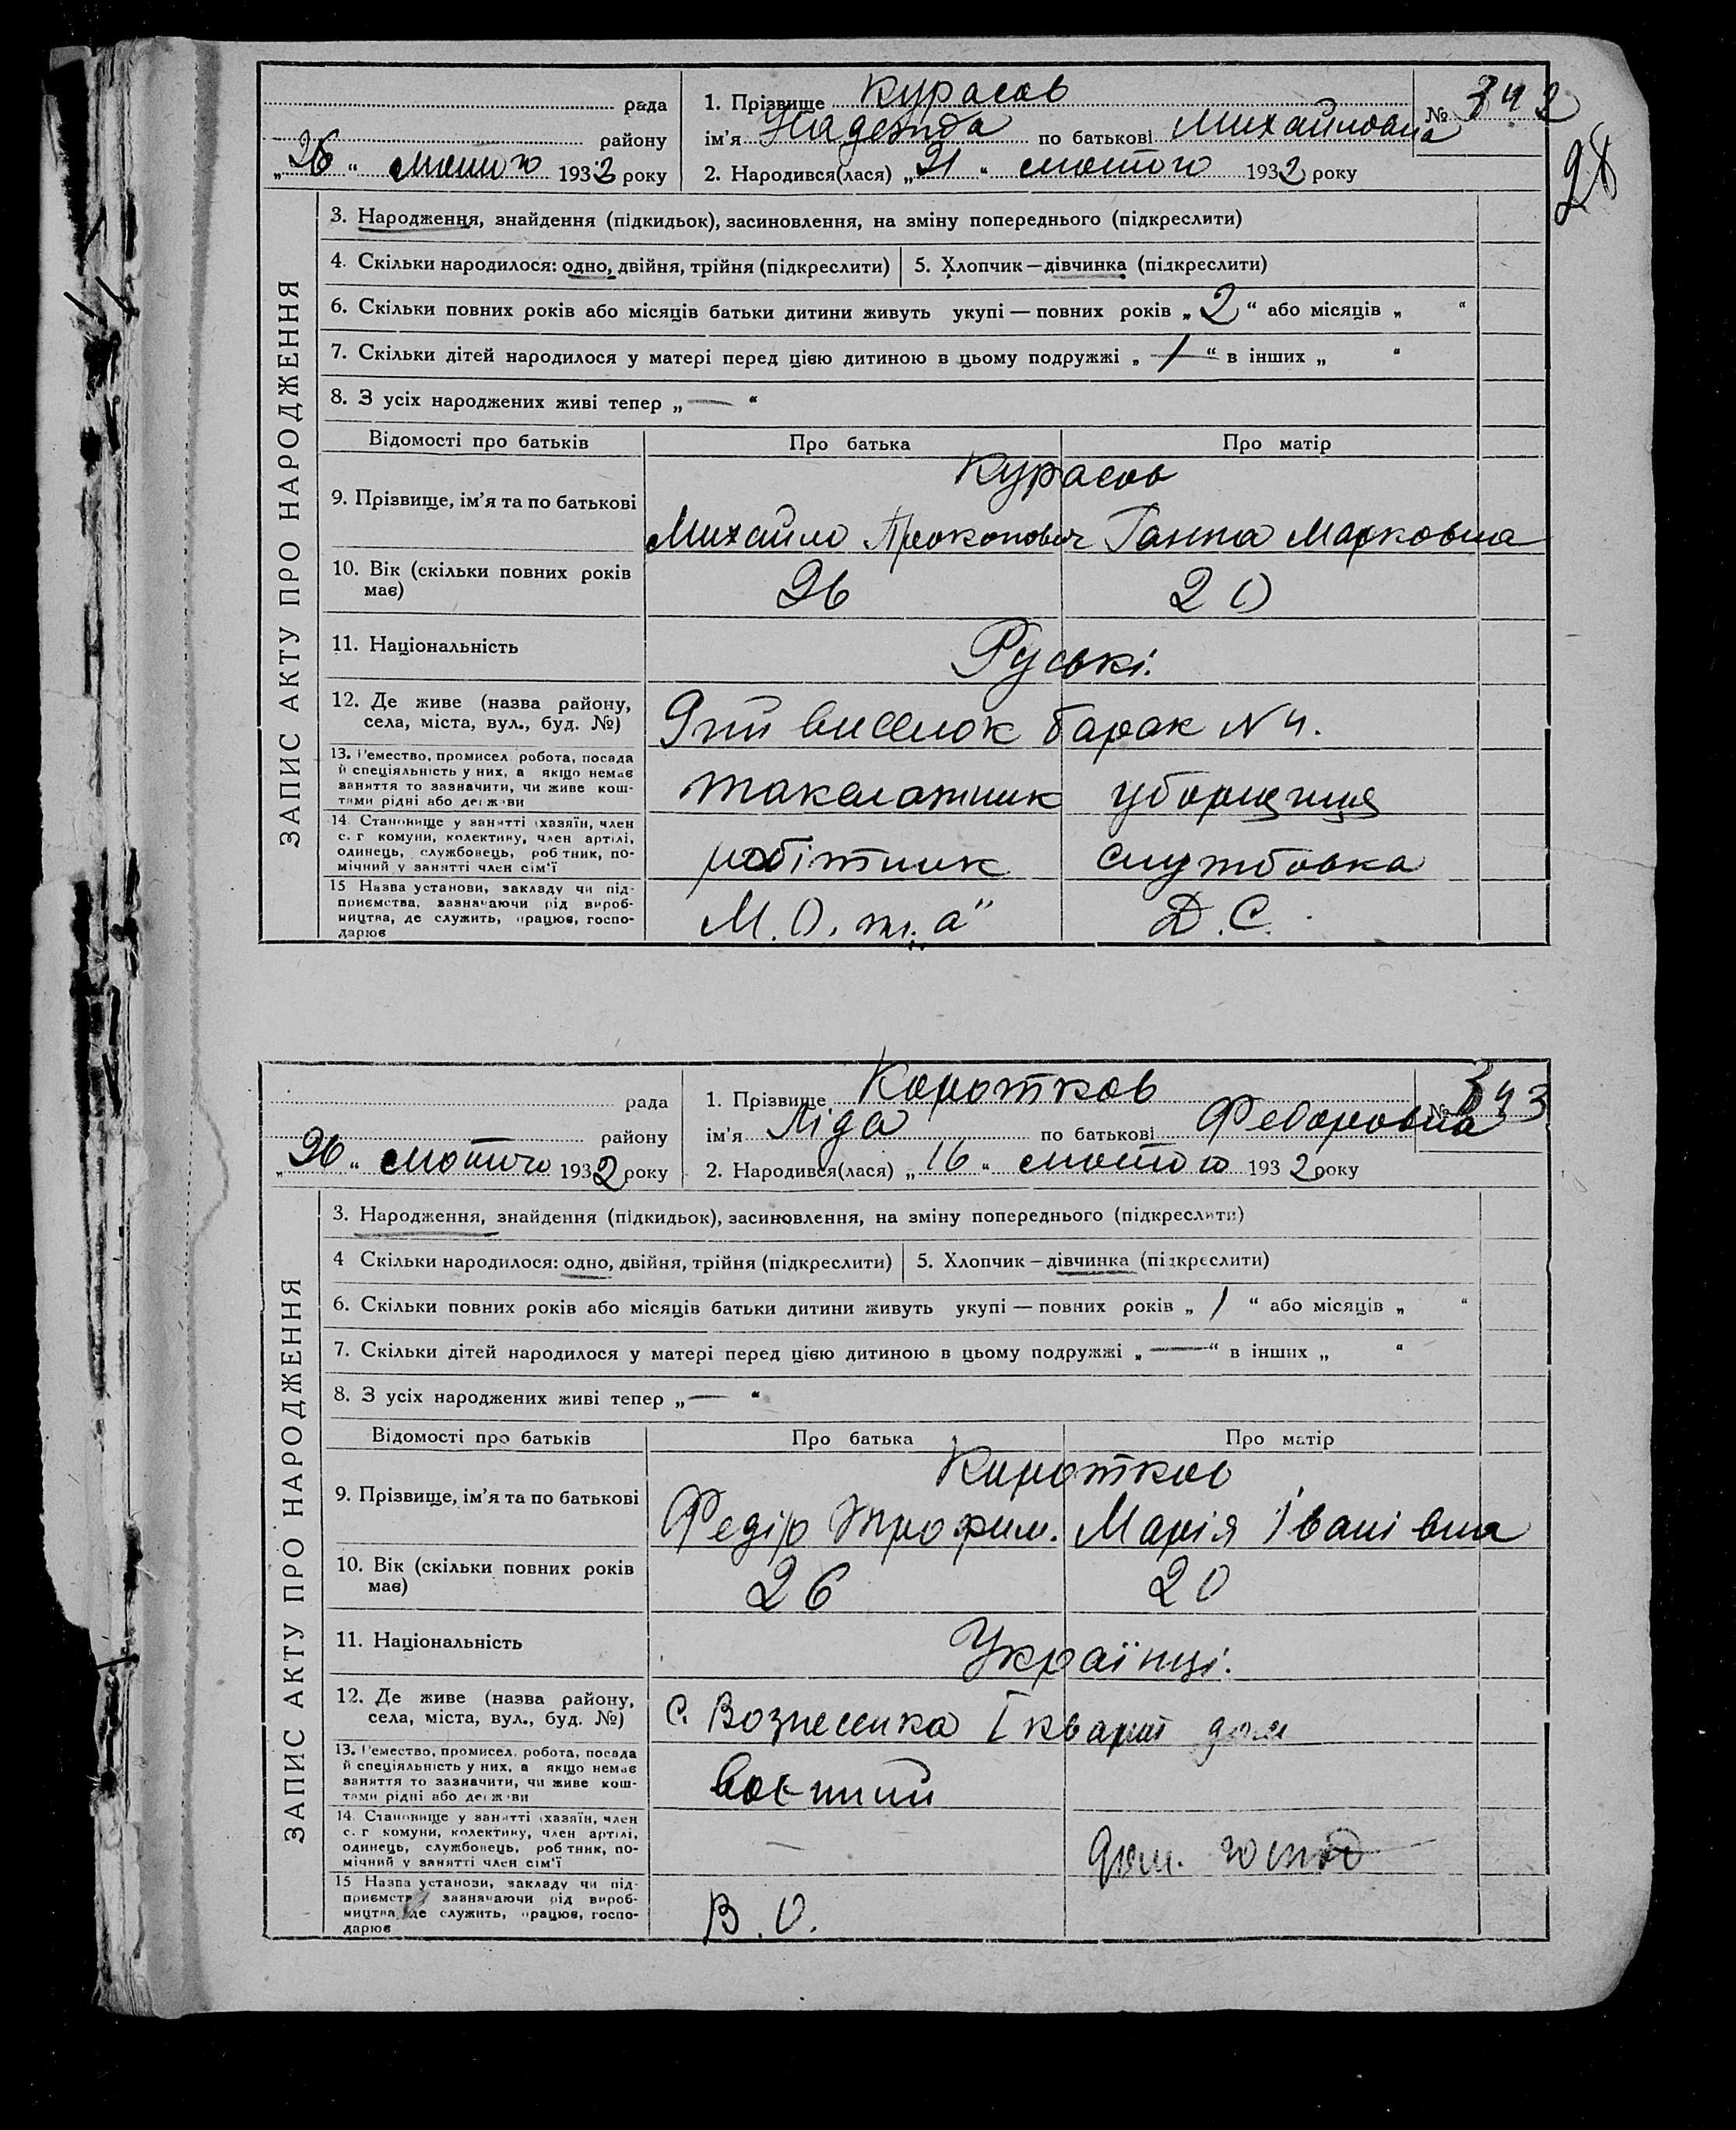 рада
району
„26“ лютого 1932 року
1. Прізвище Курасов
№ 342
ім’я Надежда по батькові Михайловна
2. Народився(лася) „21“ лютого 1932 року
28
ЗАПИС АКТУ ПРО НАРОДЖЕННЯ
3. Народження, знайдення (підкидьок), засиновлення, на зміну попереднього (підкреслити)
4. Скільки народилося: одно, двійня, трійня (підкреслити) 5. Хлопчик—дівчинка (підкреслити)
6. Скільки повних років або місяців батьки дитини живуть укупі — повних років „2“ або місяців „ “
7. Скільки дітей народилося у матері перед цією дитиною в цьому подружжі „—“ в інших „ “
8. З усіх народжених живі тепер „—“
Відомості про батьків Про батька Про матір
Курасов
9. Прізвище, ім’я та по батькові
Михайло Прокопович Ганна Марковна
10. Вік (скільки повних років
має) 26 20
11. Національність Руські.
12. Де живе (назва району,
села, міста, вул., буд. №) 9ти виселок барак № 4.
13. Ремество, промисел робота, посада
й спеціяльність у них, а якщо немає
заняття то зазначити, чи живе кош-
тами рідні або держави
такелажник уборщиця
14. Становище у занятті (хазяїн, член
с. г комуни, колективу, член артілі,
одинець, службовець, робітник, по-
мічний у занятті член сім’ї
робітник службовка
15 Назва установи, закладу чи під-
приємства, зазначаючи рід вироб-
ництва, де служить, працює, госпо-
дарює
М. О. Д. С.
рада
району
„26“ лютого 1932 року
1. Прізвище Коротков
№ 343
ім’я Ліда по батькові Федоровна
2. Народився(лася) „16“ лютого 1932 року
ЗАПИС АКТУ ПРО НАРОДЖЕННЯ
3. Народження, знайдення (підкидьок), засиновлення, на зміну попереднього (підкреслити)
4 Скільки народилося: одно, двійня, трійня (підкреслити) 5. Хлопчик—дівчинка (підкреслити)
6. Скільки повних років або місяців батьки дитини живуть укупі — повних років „1“ або місяців „ “
7. Скільки дітей народилося у матері перед цією дитиною в цьому подружжі „—“ в інших „ “
8. З усіх народжених живі тепер „—“
Відомості про батьків Про батька Про матір
Коротков
9. Прізвище, ім’я та по батькові
Федір Трофим. Марія Іванівна
10. Вік (скільки повних років
має) 26 20
11. Національність Українці.
12. Де живе (назва району,
села, міста, вул., буд. №) С. Вознесенка І кварт дом
13. Ремество, промисел, робота, посада
й спеціяльність у них, а якщо немає
заняття то зазначити, чи живе кош-
тами рідні або держави
воєнний
14. Становище у занятті (хазяїн, член
с. г комуни, колективу, член артілі,
одинець, службовець, робітник, по-
мічний у занятті член сім’ї
— дом. госпо
15 Назва установи, закладу чи під-
приємств зазначаючи рід вироб-
ництва де служить, працює, госпо-
дарює
В. О.